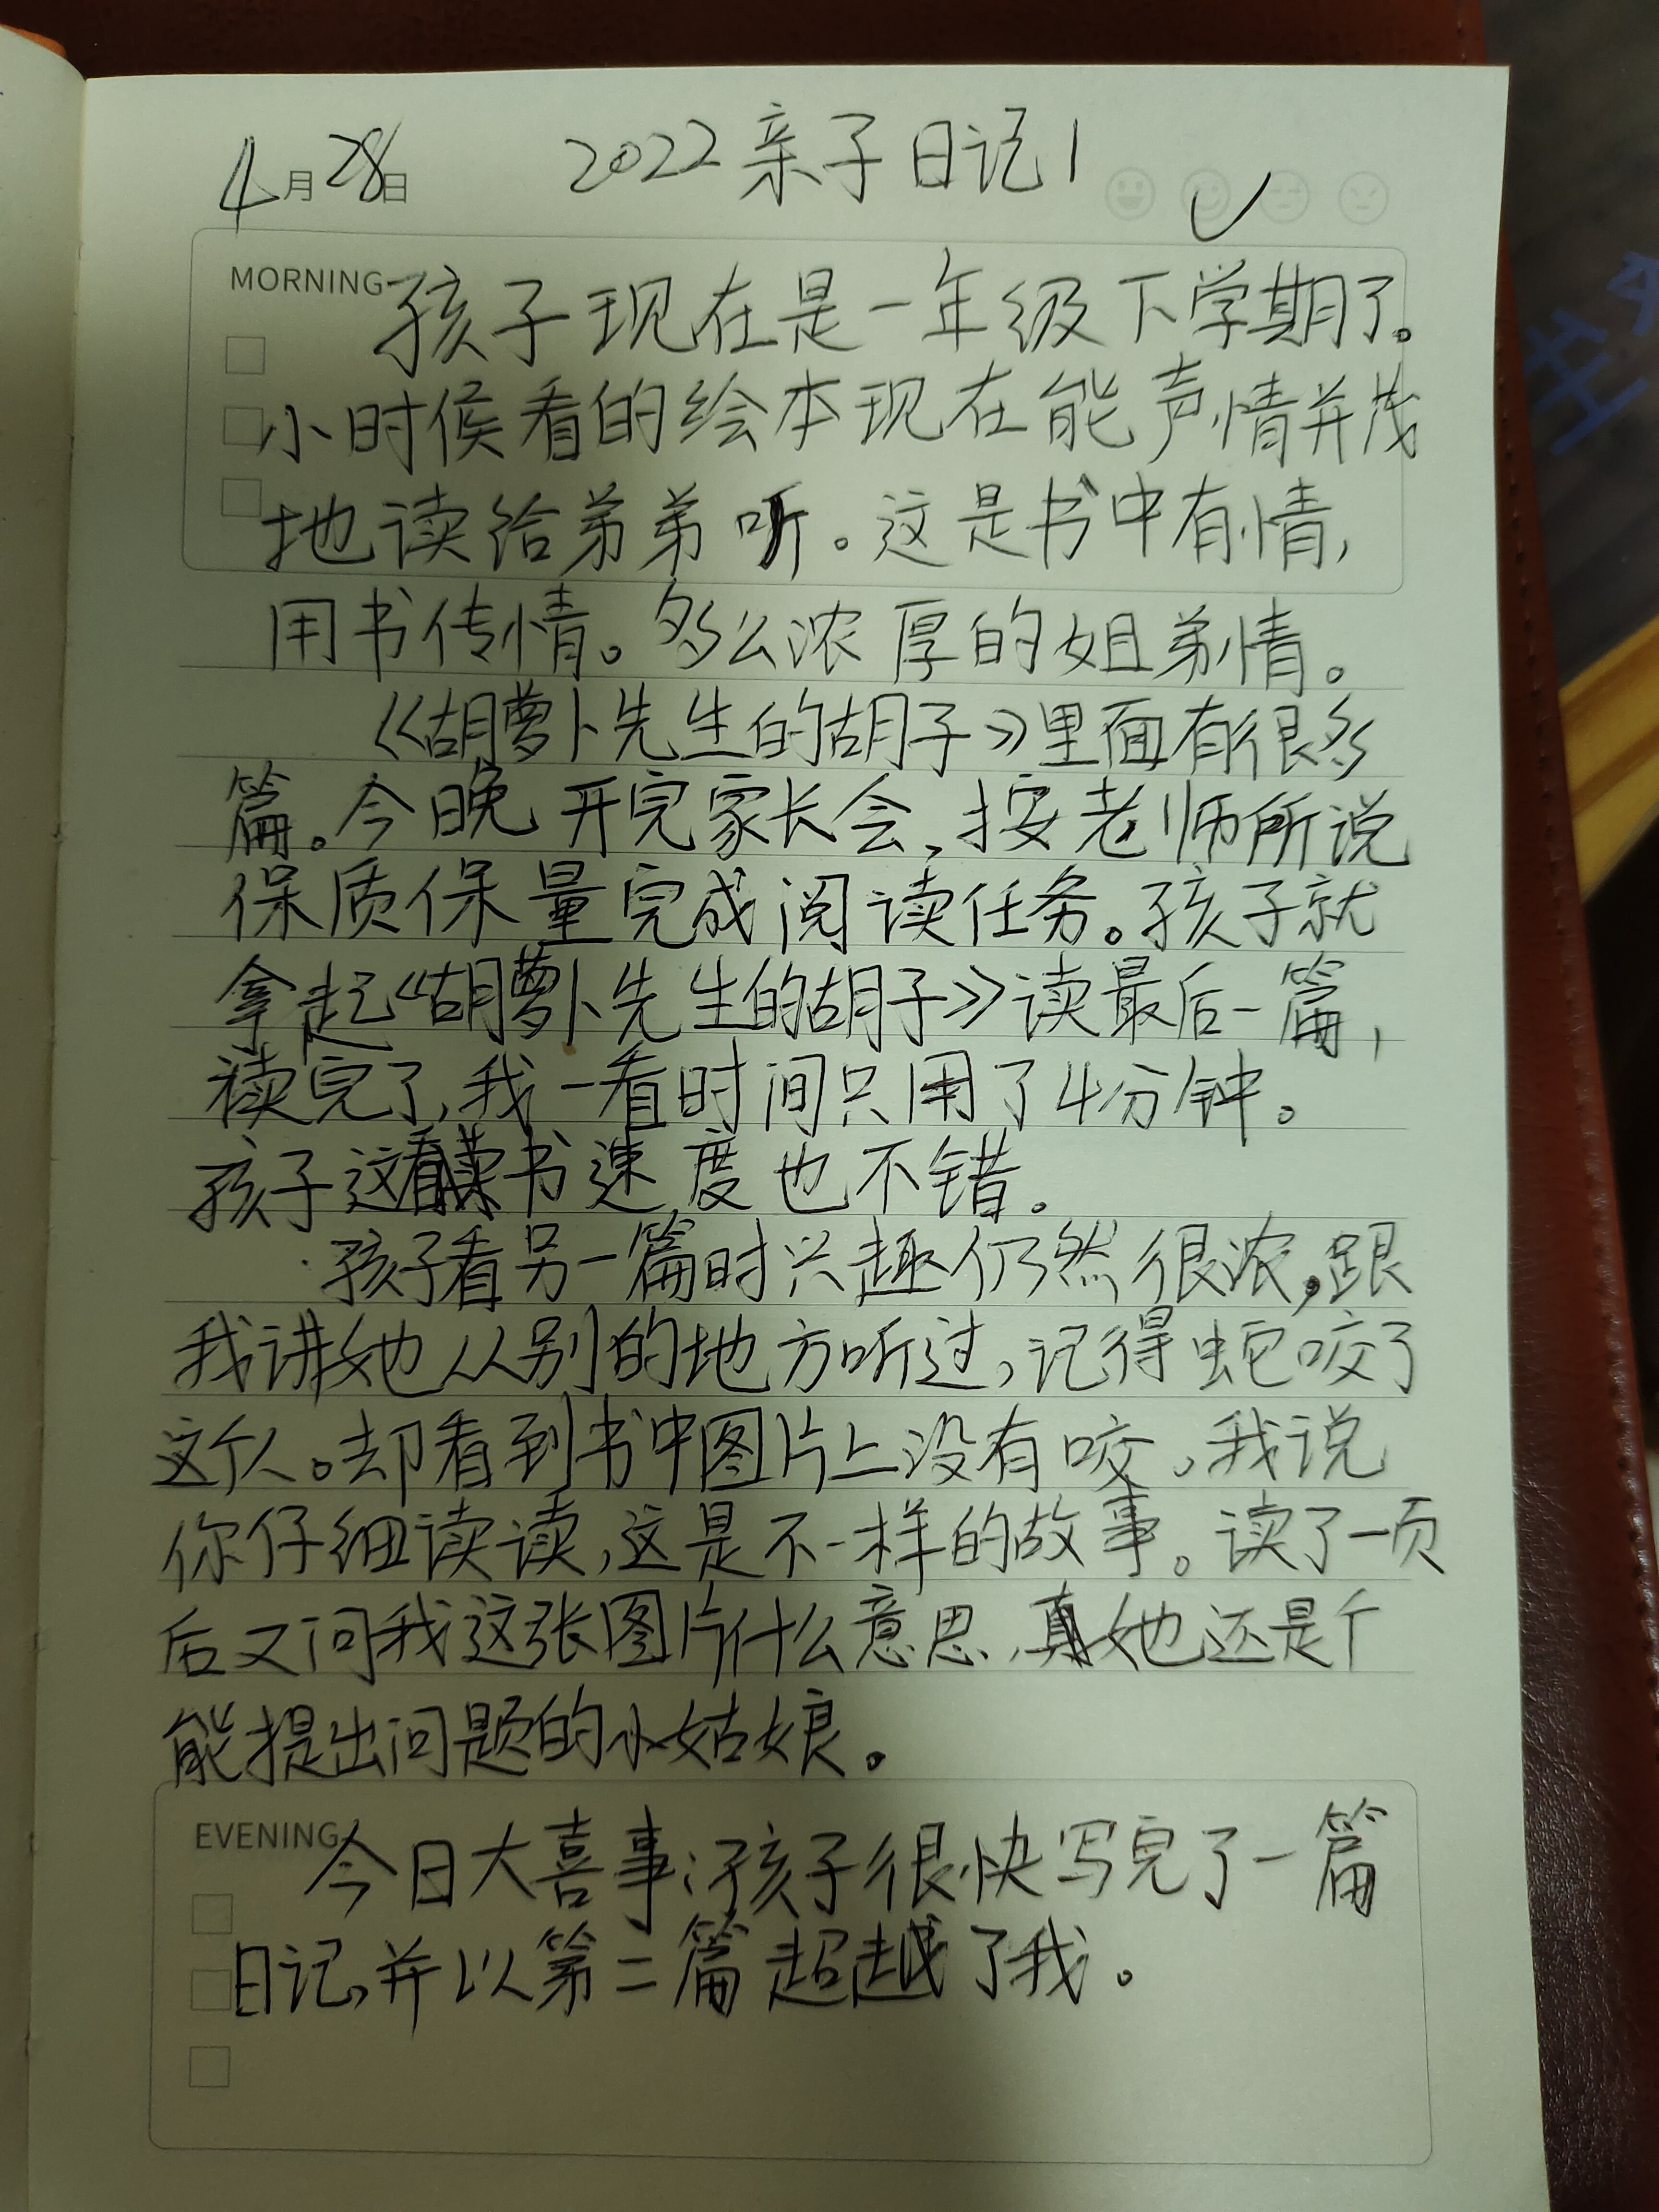 4月28日 2022亲子日记1
MORNING 孩子现在是一年级下学期了。
小时候看的绘本现在能声情并茂
地读给弟弟听。这是书中有情，
用书传情。多么浓厚的姐弟情。
《胡萝卜先生的胡子》里面有很多
篇。今晚开完家长会，按老师所说
保质保量完成阅读任务。孩子就
拿起《胡萝卜先生的胡子》读最后一篇，
读完了，我一看时间只用了4分钟。
孩子这看读书速度也不错。
孩子看另一篇时兴趣仍然很浓，跟
我讲她从别的地方听过，记得蛇咬了
这个人。却看到书中图片上没有咬。我说
你仔细读读，这是不一样的故事。读了一页
后又问我这张图片什么意思，真她还是个
能提出问题的小姑娘。
EVENING 今日大喜事：孩子很快写完了一篇
日记，并以第二篇超越了我。